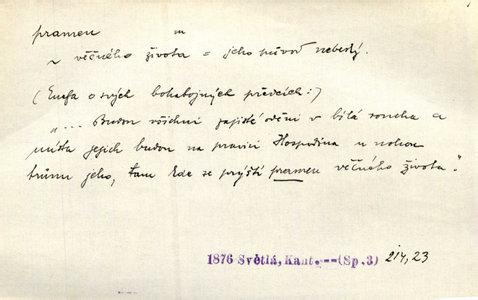 pramen m
~ věčného života = jeho původ nebeský.
(Enefa o svých bohabojných předcích:)
"... Budou všichni zajisté oděni v bílá roucha a
místa jejich budou na pravici Hospodina u nohou
trůnu jeho, tam kde se prýští pramen věčného života".
1876 Světlá, Kant. -- (Sp.3) 214,23